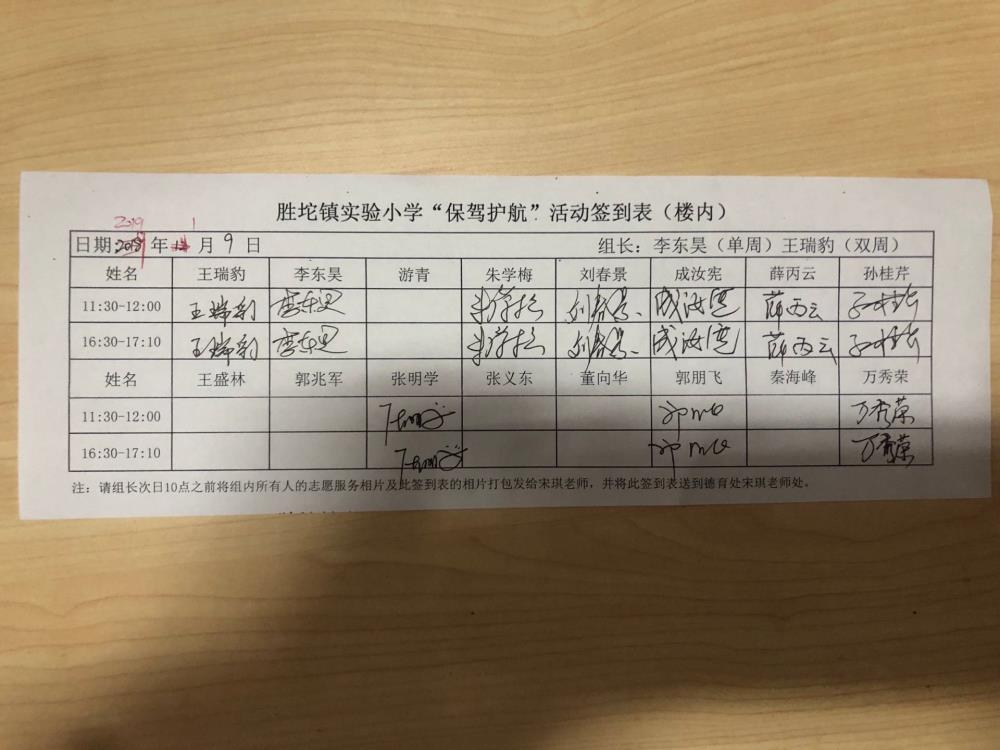 胜坨镇实验小学“保驾护航”活动签到表（楼内）
2019 1
日期:2018年12月9日 组长：李东昊（单周）王瑞豹（双周）
姓名 王瑞豹 李东昊 游青 朱学梅 刘春景 成汝宪 薛丙云 孙桂芹
11:30-12:00 王瑞豹 李东昊 朱学梅 刘春景 成汝宪 薛丙云 孙桂芹
16:30-17:10 王瑞豹 李东昊 朱学梅 刘春景 成汝宪 薛丙云 孙桂芹
姓名 王盛林 郭兆军 张明学 张义东 董向华 郭朋飞 秦海峰 万秀荣
11:30-12:00 万秀荣
16:30-17:10 万秀荣
注：请组长次日10点之前将组内所有人的志愿服务相片及此签到表的相片打包发给宋琪老师，并将此签到表送到德育处宋琪老师处。